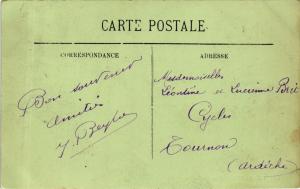 CARTE POSTALE
CORRESPONDANCE
Bon souvenir
amitiés
J. Beyle
ADRESSE
Mesdemoiselles
Léontine et Lucienne
Cycles
Tournon
(Ardèche)